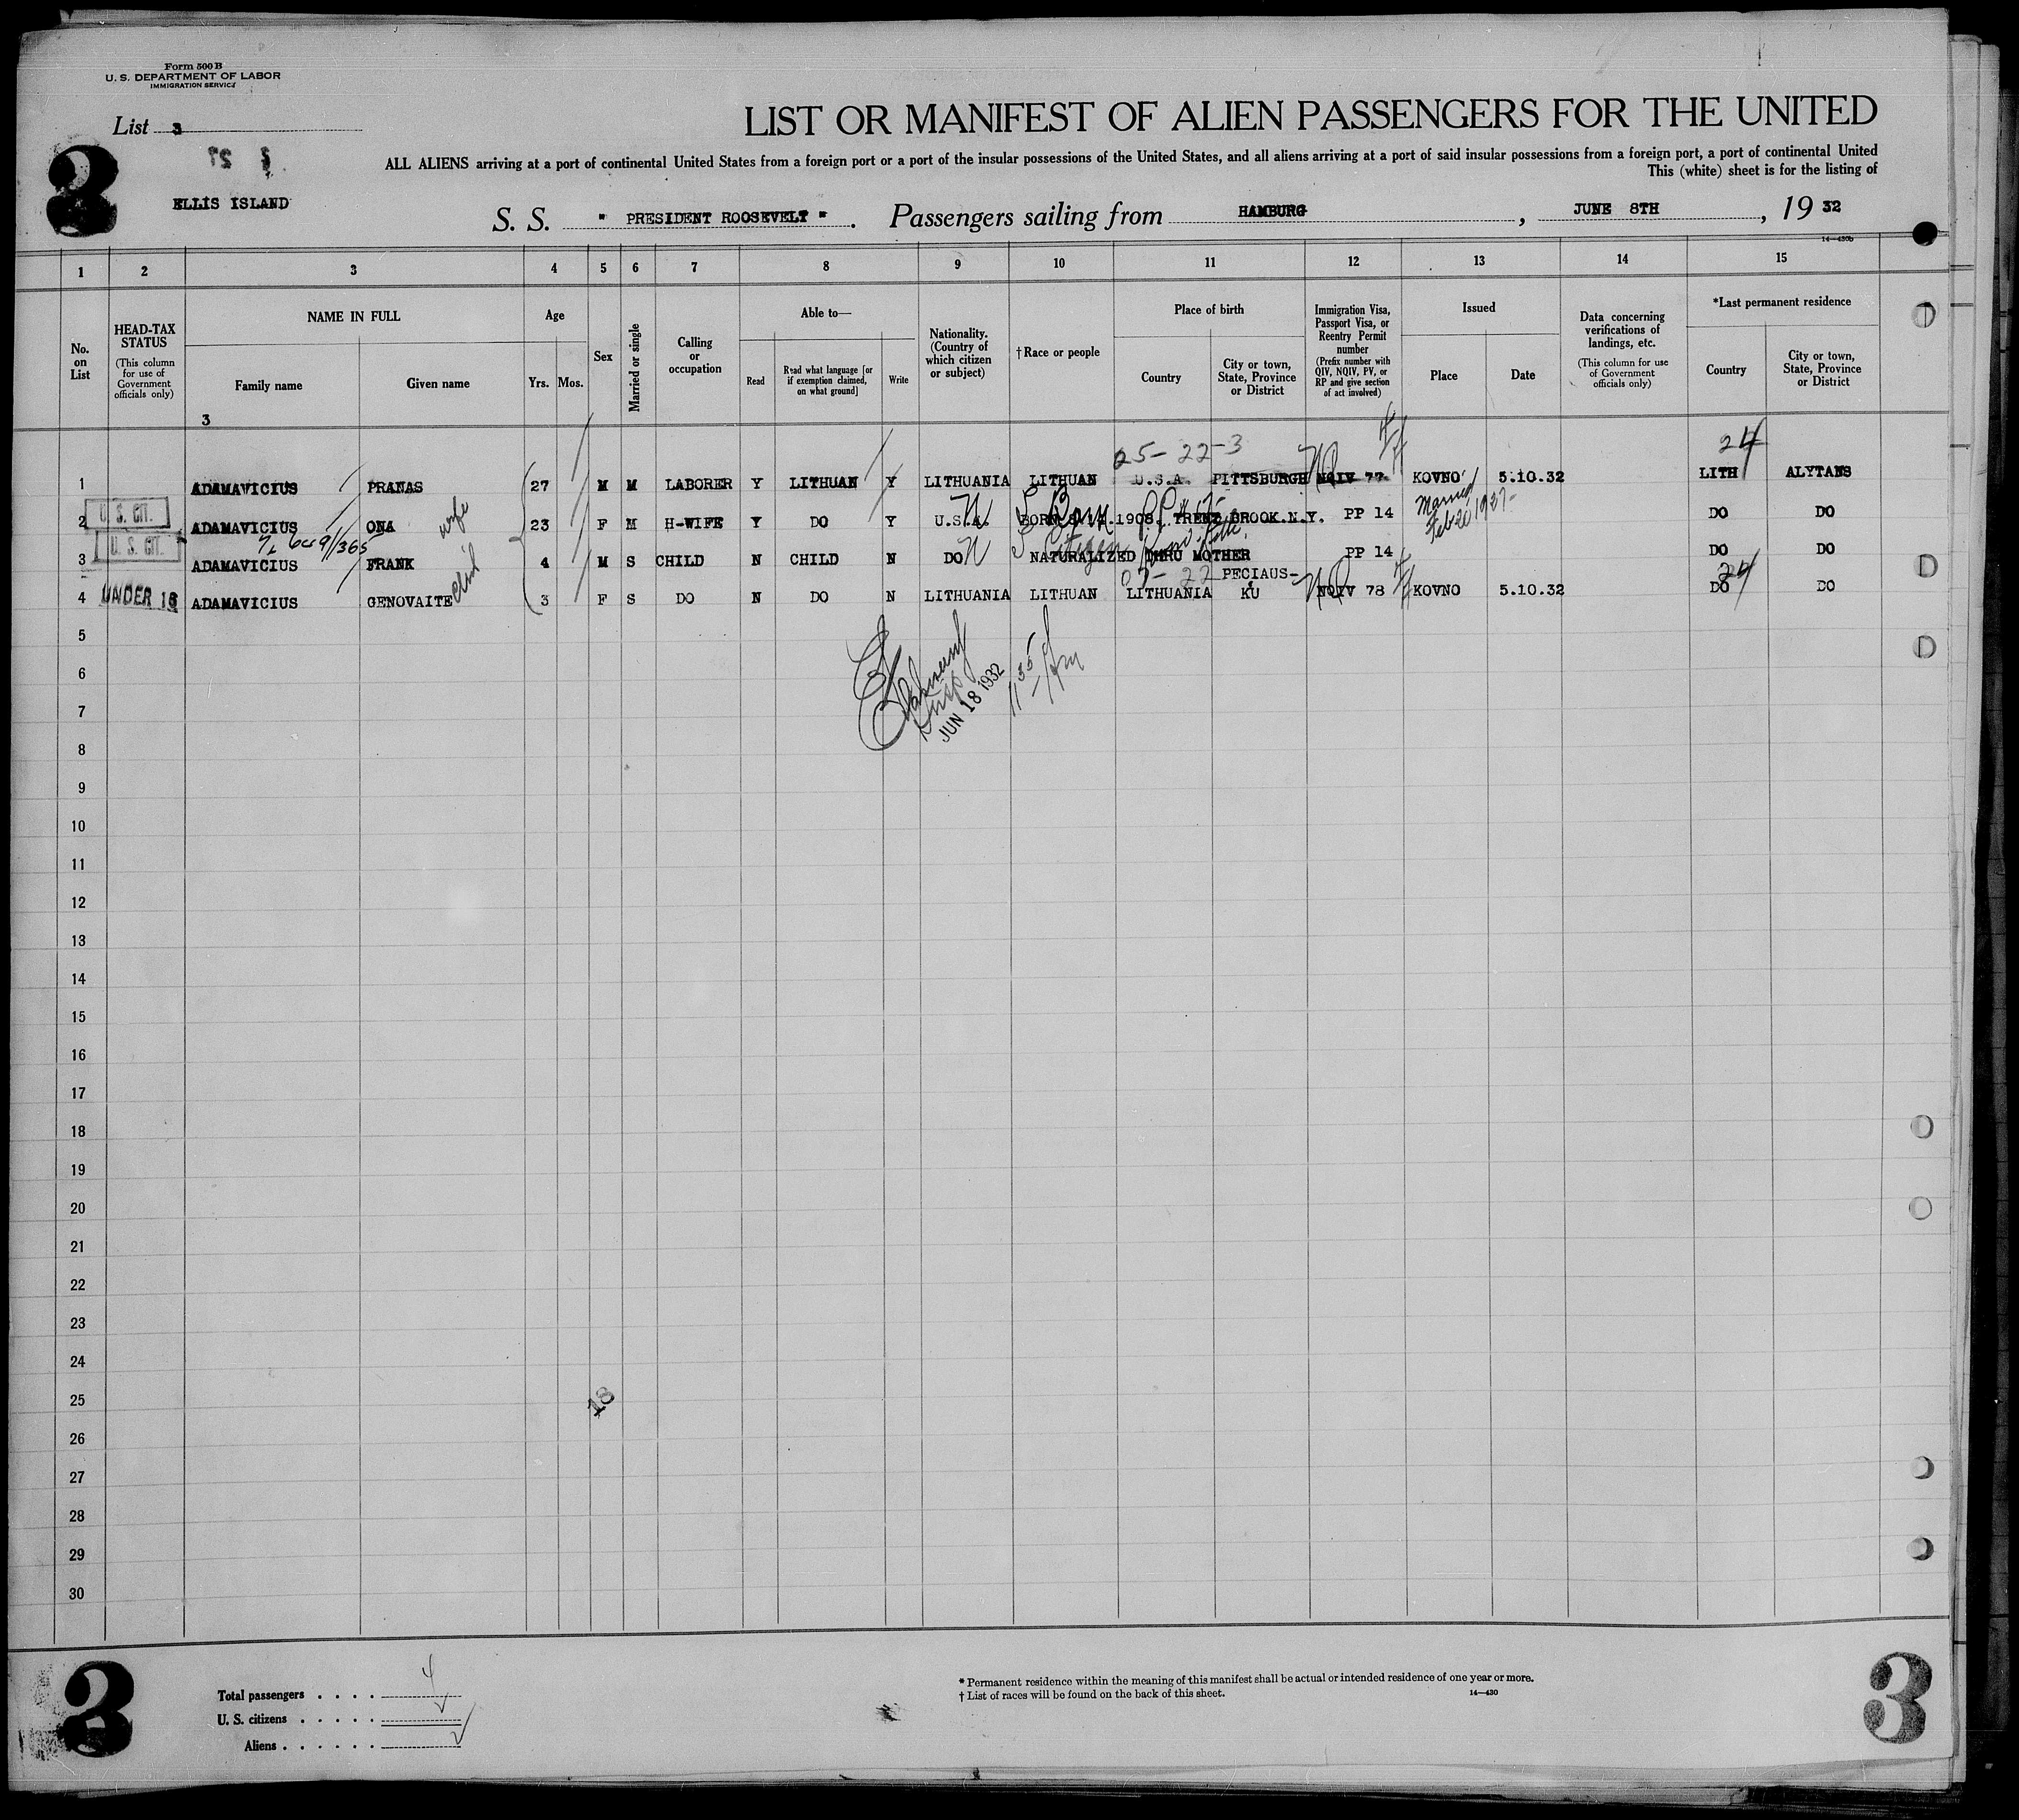 Form 500 B
U. S. DEPARTMENT OF LABOR
IMMIGRATION SERVICE
List 3
LIST OR MANIFEST OF ALIEN PASSENGERS FOR THE UNITED
3
ALL ALIENS arriving at a port of continental United States from a foreign port or a port of the insular possessions of the United States, and all aliens arriving at a port of said insular possessions from a foreign port, a port of continental United
This (white) sheet is for the listing of
ELLIS ISLAND
S. S. " PRESIDENT ROOSEVELT ". Passengers sailing from HAMBURG, JUNE 8TH, 19 32
14—430b
1 2 3 4 5 6 7 8 9 10 11 12 13 14 15
No. on List
HEAD-TAX STATUS
(This column for use of Government officials only)
NAME IN FULL
Family name
Given name
Age
Yrs. Mos.
Sex
Married or single
Calling or occupation
Able to—
Read
Read what language [or if exemption claimed, on what ground]
Write
Nationality. (Country of which citizen or subject)
† Race or people
Place of birth
Country
City or town, State, Province or District
Immigration Visa, Passport Visa, or Reentry Permit number
(Prefix number with QIV, NQIV, PV, or RP and give section of act involved)
Issued
Place
Date
Data concerning verifications of landings, etc.
(This column for use of Government officials only)
*Last permanent residence
Country
City or town, State, Province or District
3
25-22-3
24
1 ADAMAVICIUS PRANAS 27 M M LABORER Y LITHUAN Y LITHUANIA LITHUAN U.S.A. PITTSBURGH NQIV 77 KOVNO 5.10.32 LITH ALYTANS
U. S. CIT.
wife
Married Feb 20 1927-
2 ADAMAVICIUS ONA 23 F M H-WIFE Y DO Y U.S.A. BORN 1908. TRENT BROOK.N.Y. PP 14 DO DO
U. S. CIT.
3 ADAMAVICIUS FRANK 4 M S CHILD N CHILD N DO NATURALIZED THRU MOTHER PP 14 DO DO
child
24
PECIAUS-
UNDER 16
4 ADAMAVICIUS GENOVAITE 3 F S DO N DO N LITHUANIA LITHUAN LITHUANIA KU NQIV 78 KOVNO 5.10.32 DO DO
5
6
JUN 18 1932
7
8
9
10
11
12
13
14
15
16
17
18
19
20
21
22
23
24
25
18
26
27
28
29
30
3
Total passengers . . . . 4
U. S. citizens . . . . .
Aliens . . . . . .
* Permanent residence within the meaning of this manifest shall be actual or intended residence of one year or more.
† List of races will be found on the back of this sheet.
14—430
3